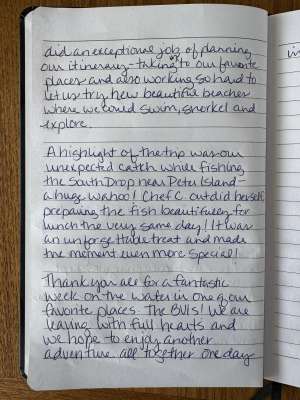 did an exceptional job of planning
our itinerary - taking us to our favorite
places and also working so hard to
let us try new beautiful beaches
where we could swim, snorkel and
explore.
A highlight of the trip was our
unexpected catch while fishing
the South Drop near Peter Island -
a huge Wahoo! Chef C outdid herself
preparing the fish beautifully for
lunch the very same day! It was
an unforgettable treat and made
the moment even more special!
Thank you all for a fantastic
week on the water in one of our
favorite places. The BVIs! We are
leaving with full hearts and
we hope to enjoy another
adventure all together one day